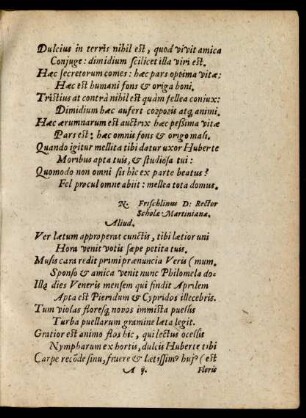 Dulcius in terris nihil est, quod vivit amica
Conjuge: dimidium scilicet illa viri est.
Hæc secretorum comes: hæc pars opoima vitæ:
Hæc est humani fons & origa honi.
Tristius at contrà nihil est quàm fellea coniux:
Dimidium hæc aufert corporis atq; animi.
Hæc ærumnarum est auctrix hæc peßima vitæ
Pars est: hæc omnis fons & origo mali.
Quando igitur mellita tibi datur uxor Huberte
Moribus apta tuis, & studiosa tui:
Quomodo non omni sis hic ex parte beatus?
Fel procul omne abiit: mellea tota domus.
N. Frischlinus D: Rector
Scholæ Martinianæ.
Aliud.
Ver lætum approperat cunctis, tibi lætior uni
Hora venit votis sæpe petita tuis.
Musis cara redit primi prænuncia Veris (mum,
Sponso & amica venit nunc Philomela do-
Illa dies Veneris mensem qui findit Aprilem
Apta est Pieridum & Cypridos illecebris.
Tum violas floresq; novos immista puellis
Turba puellarum gramine læta legit.
Gratior est animo flos hic, qui lectus ocellis
Nympharum ex hortis, dulcis Huberte tibi
Carpe recẽde sinu, fruere & lætissim9 huj9 (est
A 4.
Floris